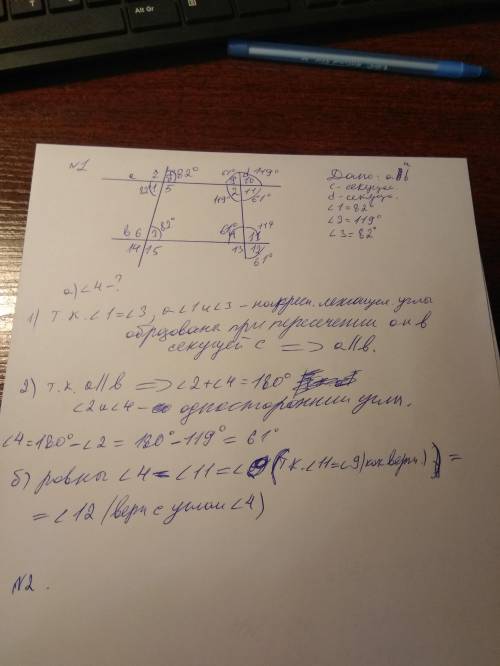 Alt Gr
N1
a 2 7 82° 61° d 119°
8 10
1 5 2 11
119° 61°
в 6 3 82° 61° 4
14 15 13 12
61°
Дано: a ll b
c - секущая
d - секущая
∠1=82°
∠2=119°
∠3=82°
а) ∠4-?
1) т.к. ∠1=∠3, а ∠1 и ∠3 - накрест. лежащие углы
образована при пересечении a и в
секущей c => a||в.
2) т.к. a||в => ∠2+∠4=180°
∠2 и ∠4 - односторонние углы.
∠4=180°-∠2=180°-119°=61°
б) равны ∠4=∠11=∠9 (т.к. ∠11=∠9 как верт.) =
= ∠12 (верт с углом ∠4)
N2.